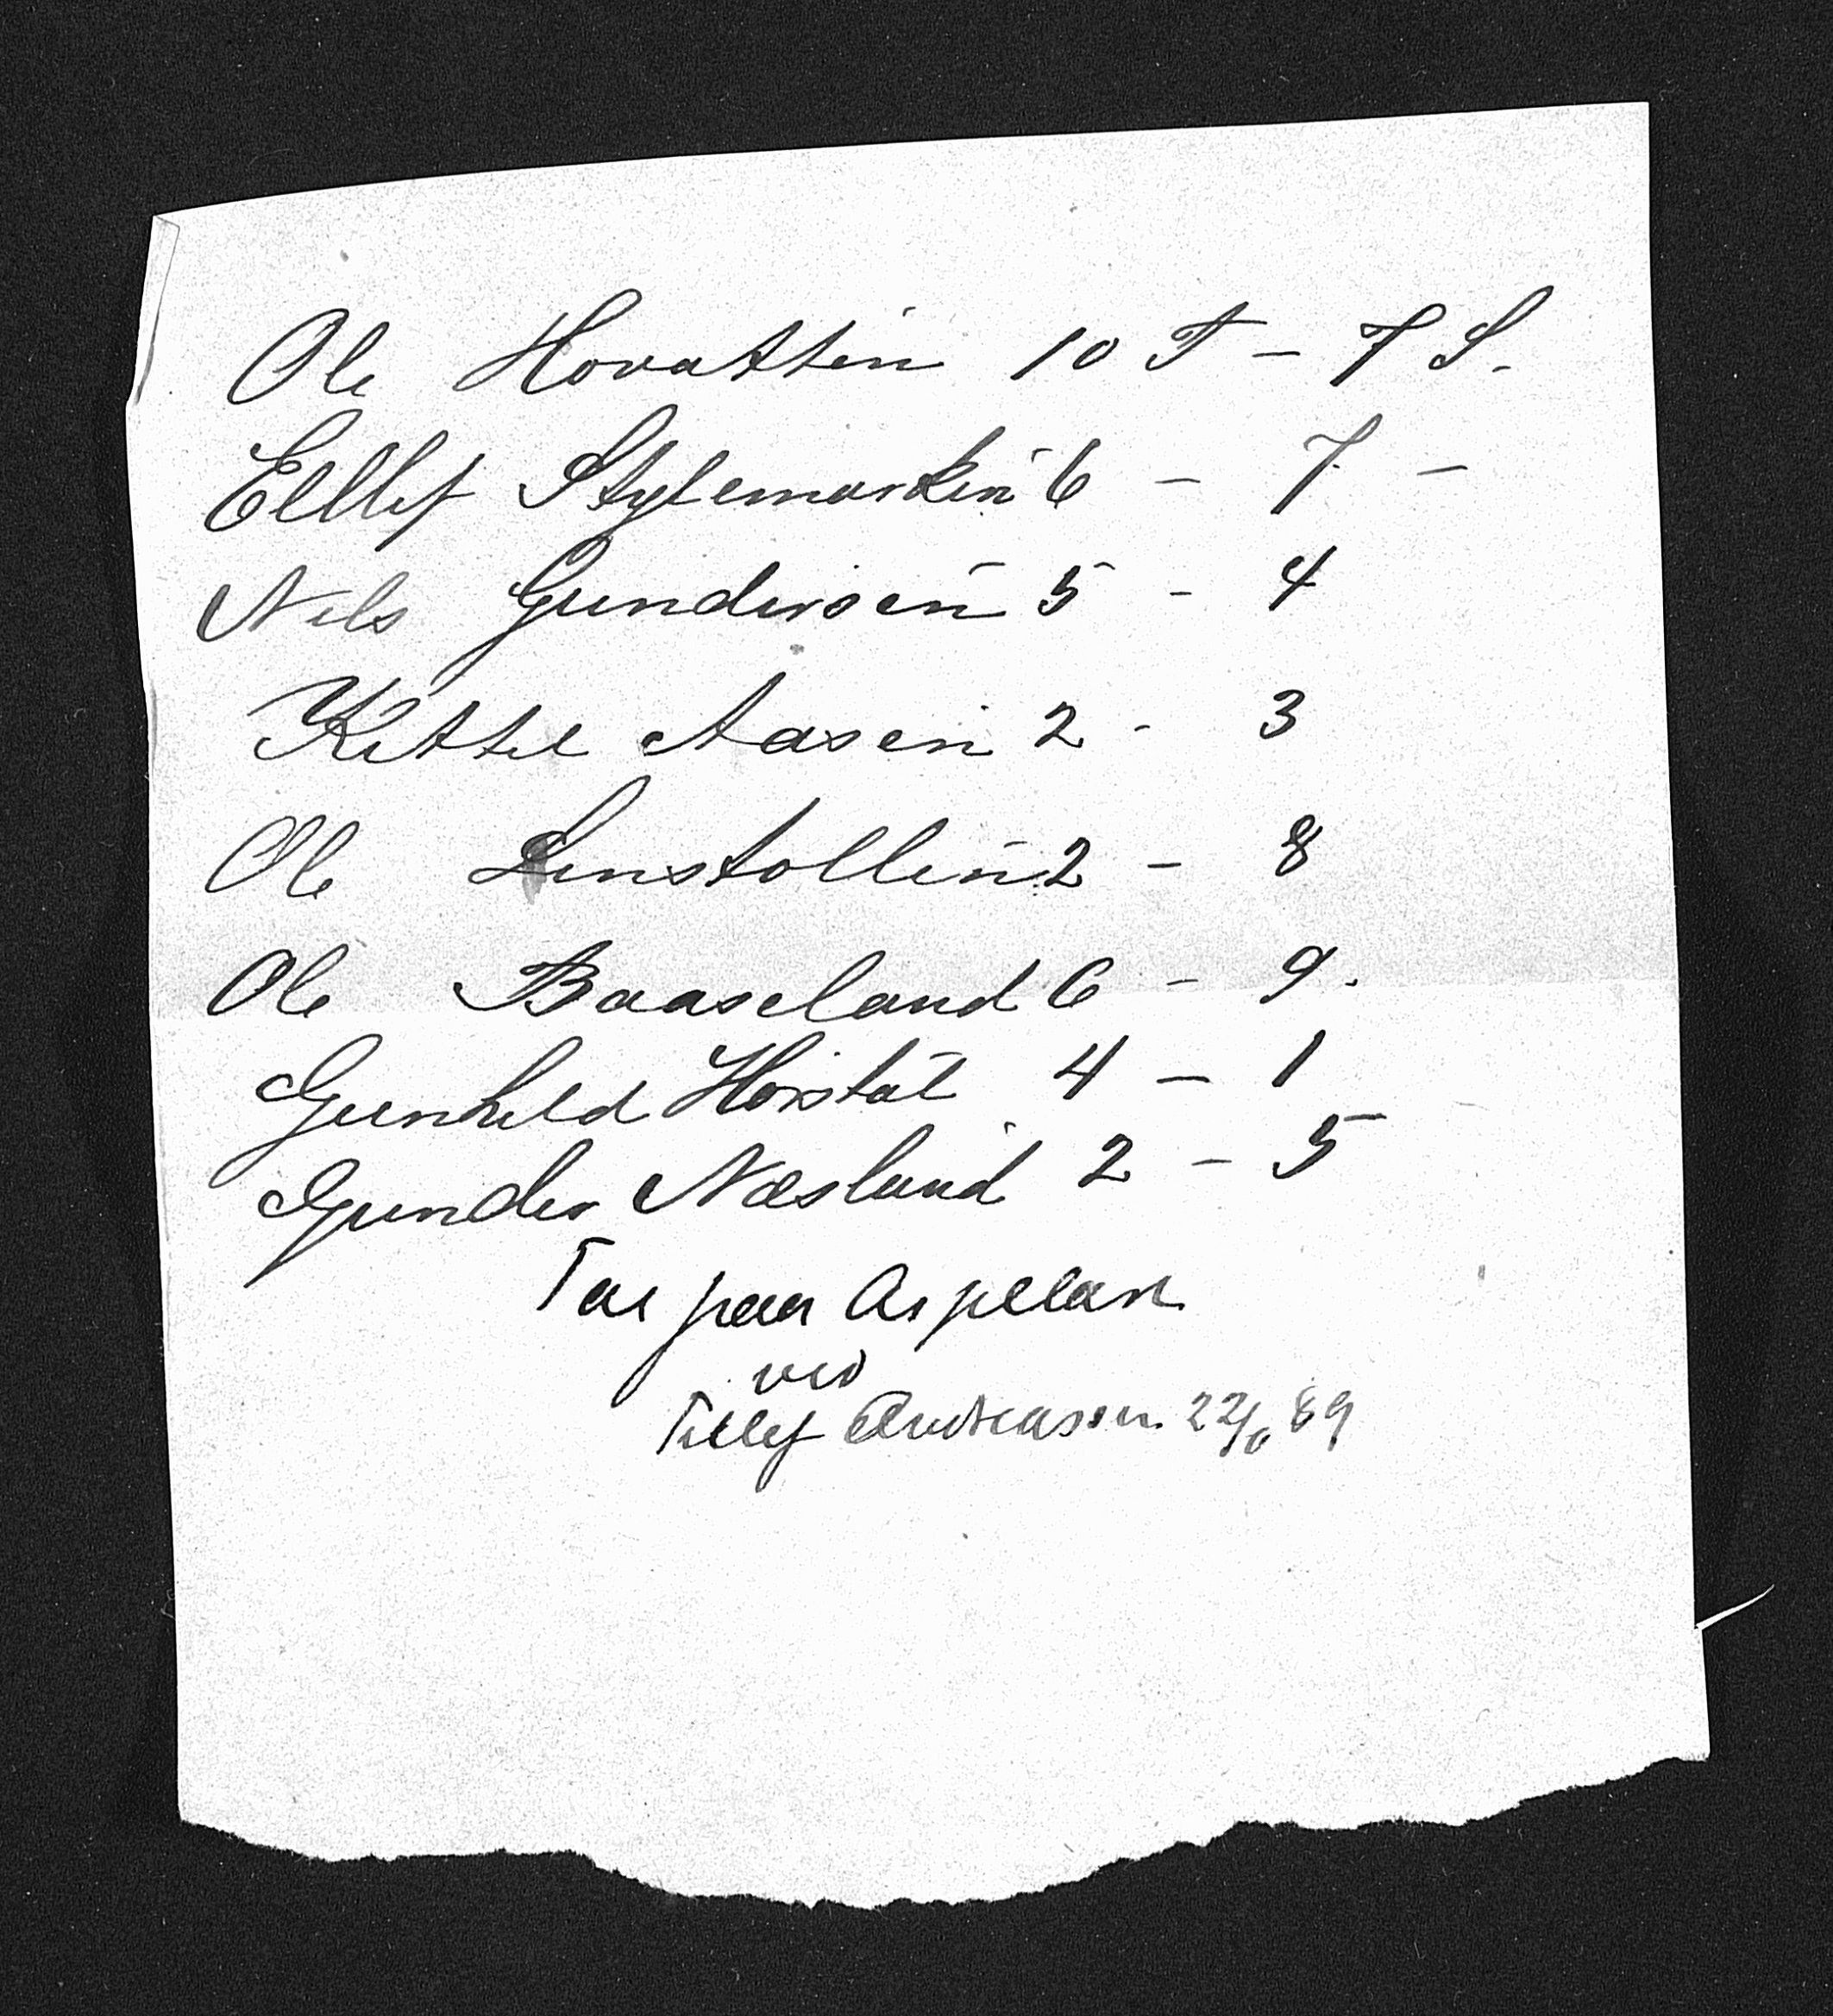 Ole Hovatten 10 T – 7 S.
Ellef Stylemarken 6 – 7 –
Nils Gundersen 5 - 4
Kittel Aasen 2 - 3
Ole Lenstollen 2 - 8
Ole Baaseland 6 - 9.
Gunhild Horstøl 4 – 1
Gunder Næsland 2 – 5
Tat paa Aspelan
ved
Tellef Andreassen 22/6 89